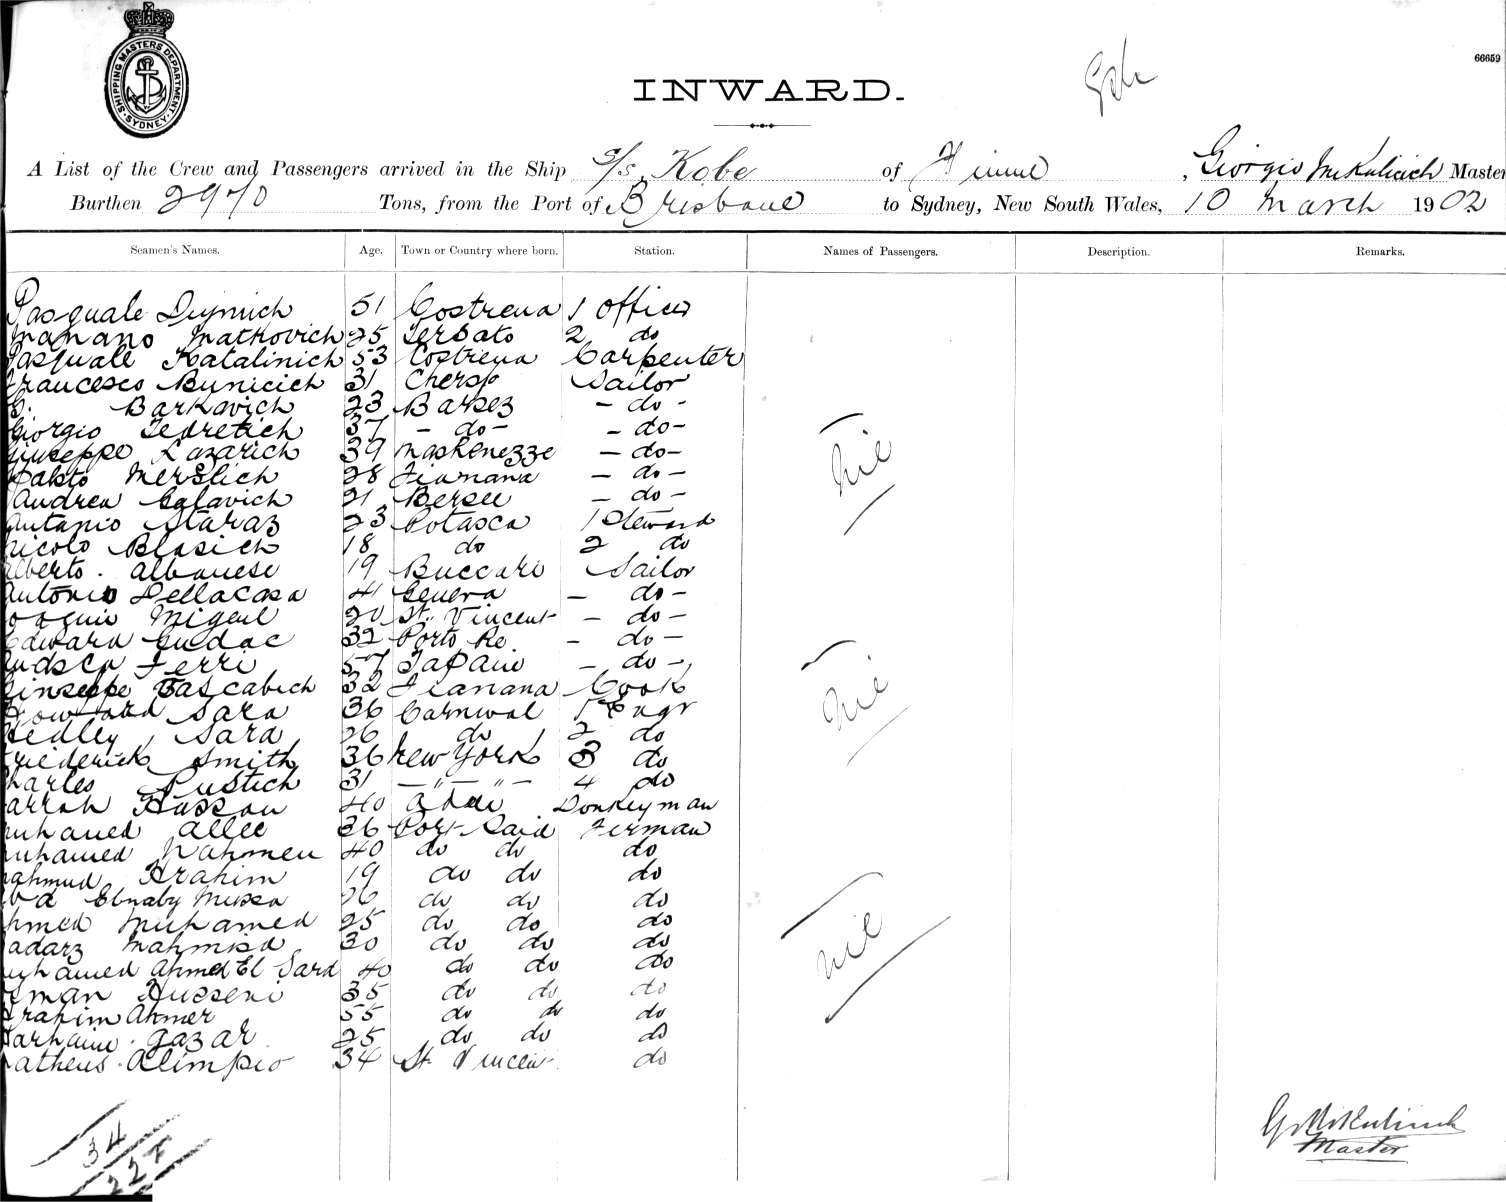 SHIPPING MASTERS DEPARTMENT
SYDNEY
66659
INWARD.
A List of the Crew and Passengers arrived in the Ship S/s Kobe of Fiume, Giorgio Mikulicich Master
Burthen 2970 Tons, from the Port of Brisbane to Sydney, New South Wales, 10 March 1902
Seamen's Names. Age. Town or Country where born. Station. Names of Passengers. Description. Remarks.
Pasquale 51 Costrena 1 Officer
Mariano Matkovich 25 Tersato 2 do
Pasquale Katalinich 53 Costrena Carpenter
Francesco Bunicich 31 Cherso Sailor
G. Barkovich 23 Barsez - do -
Giorgio Tedretich 37 - do - - do -
Giuseppe Lazarich 39 - do -
Merslich 28 Fianana - do -
Andrea Galavich 21 Bersee - do -
Antonio Staraz 23 Potasca 1 Steward
Nicolo Blasich 18 do 2 do
Alberto. Albanese 19 Buccari Sailor
Antonio Dellacasa 41 Genera - do -
Migeul 20 St. Vincent - do -
Edward Gudac 32 Porto Re. - do -
Ferri 57 - do -
Giuseppe Bascabich 32 Fianana Cook
Howard Sara 36 Carnwal 1 Engr
Hedley Sara 26 do 2 do
Friederick Smith 36 New York 3 do
Charles Pustich 31 - " - " - 4 do
Farrah Hassan 40 Donkeyman
Muhamed Allee 36 Port Said Firman
Muhamed 40 do do do
Mahmud Ibrahim 19 do do do
Ebnaby Mussa 26 do do do
Ahmed Muhamed 25 do do do
30 do do do
Muhamed Ahmed El Sard 40 do do do
Osman Husseni 35 do do do
Ibrahim Ahmer 55 do do do
Gazar 25 do do do
Matheus. Alimpio 34 St. Vincent do
Nil
Nil
Nil
34
227
G. Mikulicich
Master